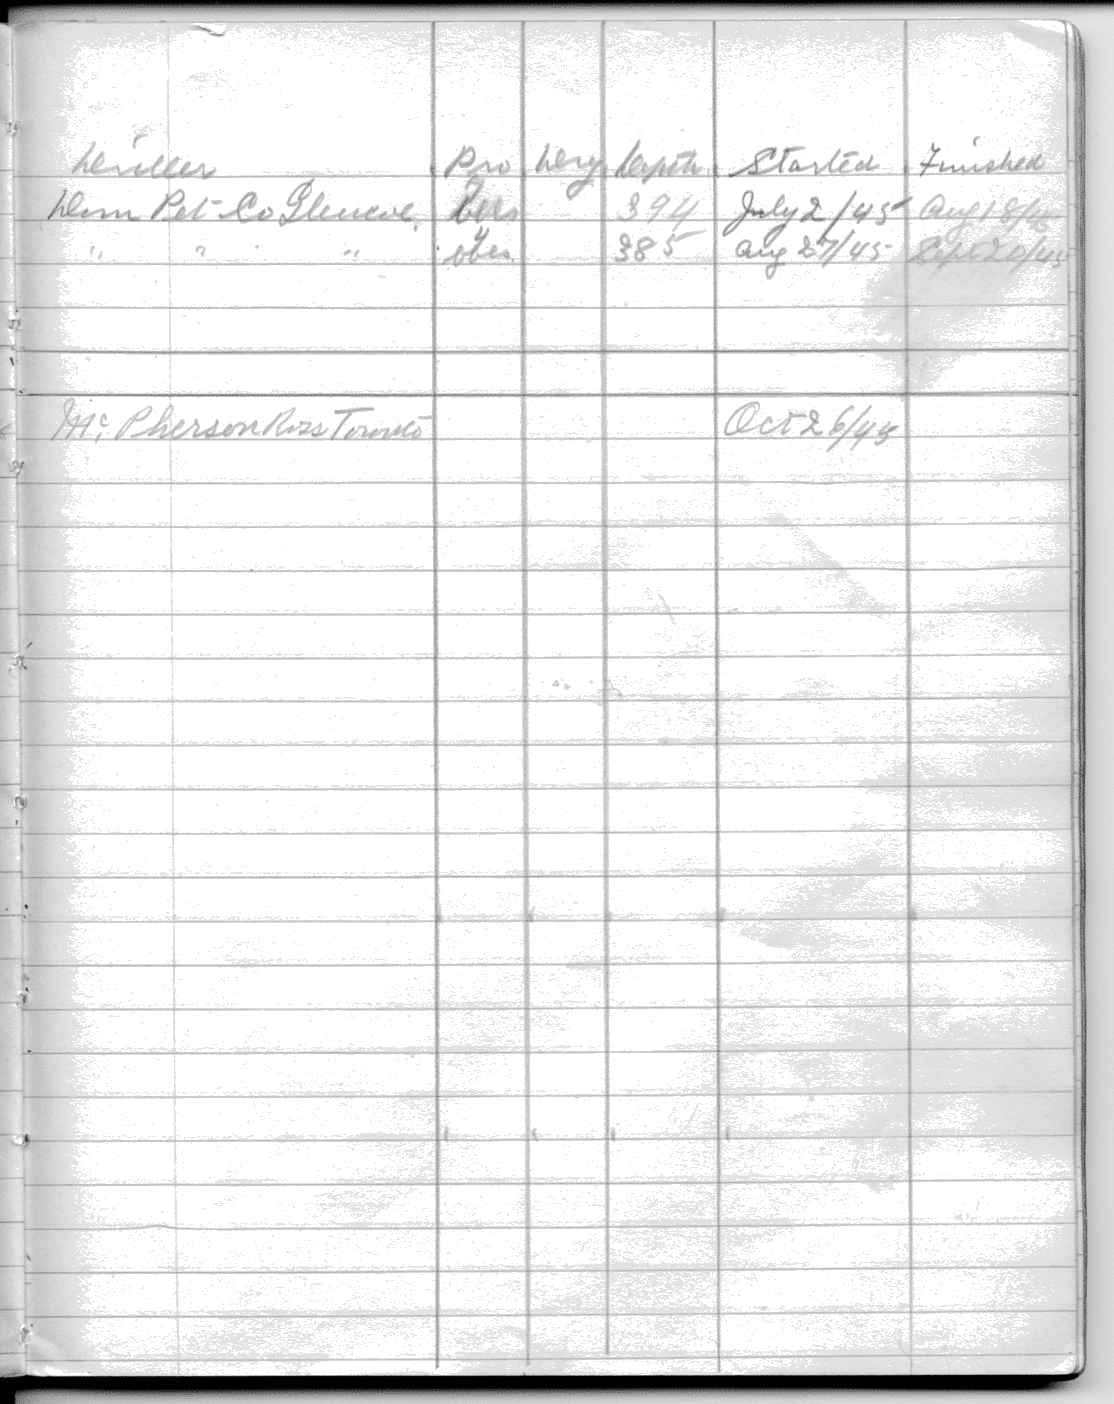 Driller Pro Dry Depth Started Finished
Dom Pet Co Glencoe 394 July 2/45 Aug 18/45
" " " 385 Aug 27/45 Sept 20/45
Mc Pherson Ross Toronto Oct 26/45